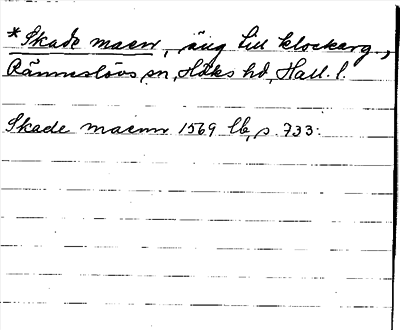 *Skade maen, äng till klockarg.,
Rännslövs sn, Höks hd, Hall. l.
Skade maenn 1569 lb, s. 733.